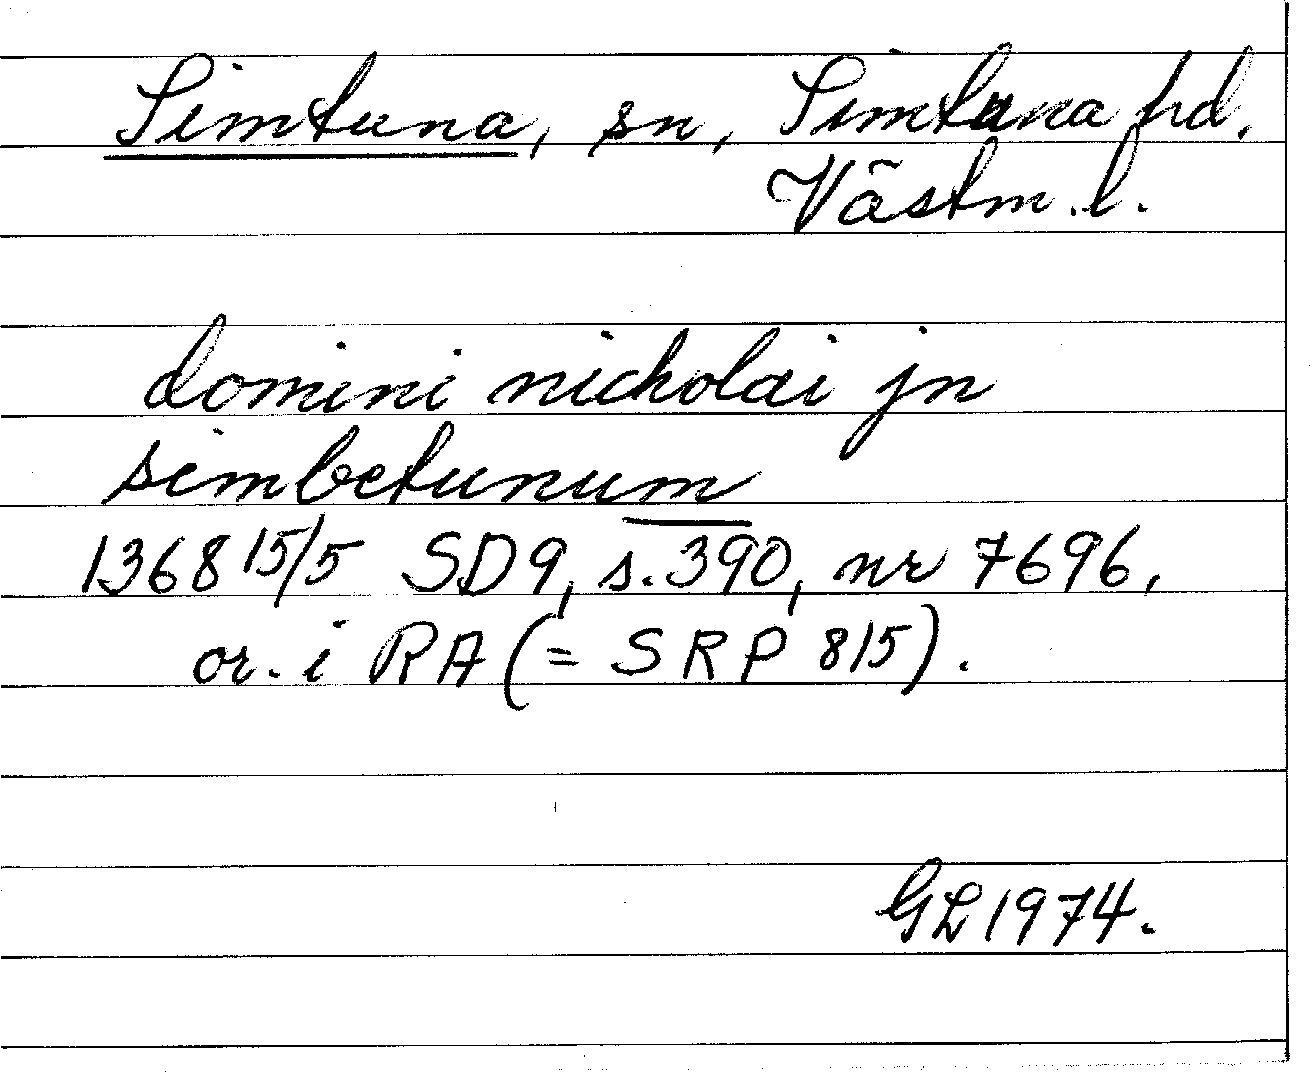 Simtuna, sn, Simtuna hd.
Västm. l.
domini nicholai jn
simbetunum
1368 15/5 SD9, s. 390, nr 7696,
or. i RA (= SRP 815).
GL 1974.